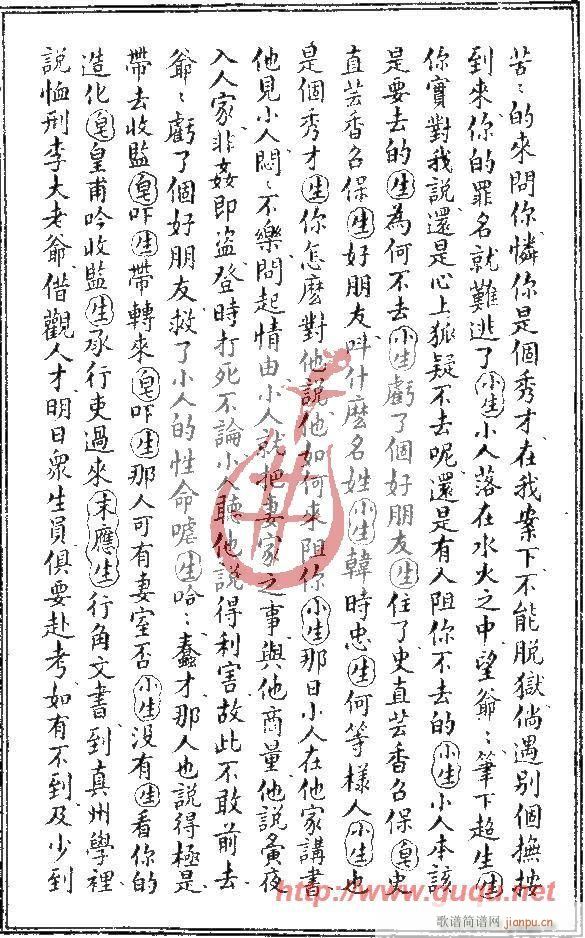 苦〻的來問你憐你是個秀才在我案下不能脫獄倘遇別個撫按
到來你的罪名就難逃了小生小人落在水火之中望爺〻筆下超生生
你實對我說還是心上狐疑不去呢還是有人阻你不去的小生小人本該
是要去的生為何不去小生虧了個好朋友生住了史直芸香名保皂史
直芸香名保生好朋友呌什麽名姓小生韓時忠生何等樣人小生也
是個秀才生你怎麽對他說他如何來阻你小生那日小人在他家講書
他見小人悶〻不樂問起情由小人就把妻家之事與他商量他說夤夜
入人家非姦即盜登時打死不論小人聽他說得利害故此不敢前去
爺〻虧了個好朋友救了小人的性命嘘生哈〻蠢才那人也說得極是
帶去收監皂吓生帶轉來皂吓生那人可有妻室否小生沒有生看你的
造化皂皇甫吟收監生承行吏過來末應生行角文書到真州學裡
說恤刑李大老爺借觀人才明日衆生員俱要赴考如有不到及少到
http://www.guqu.net
歌谱简谱网
jianpu.cn